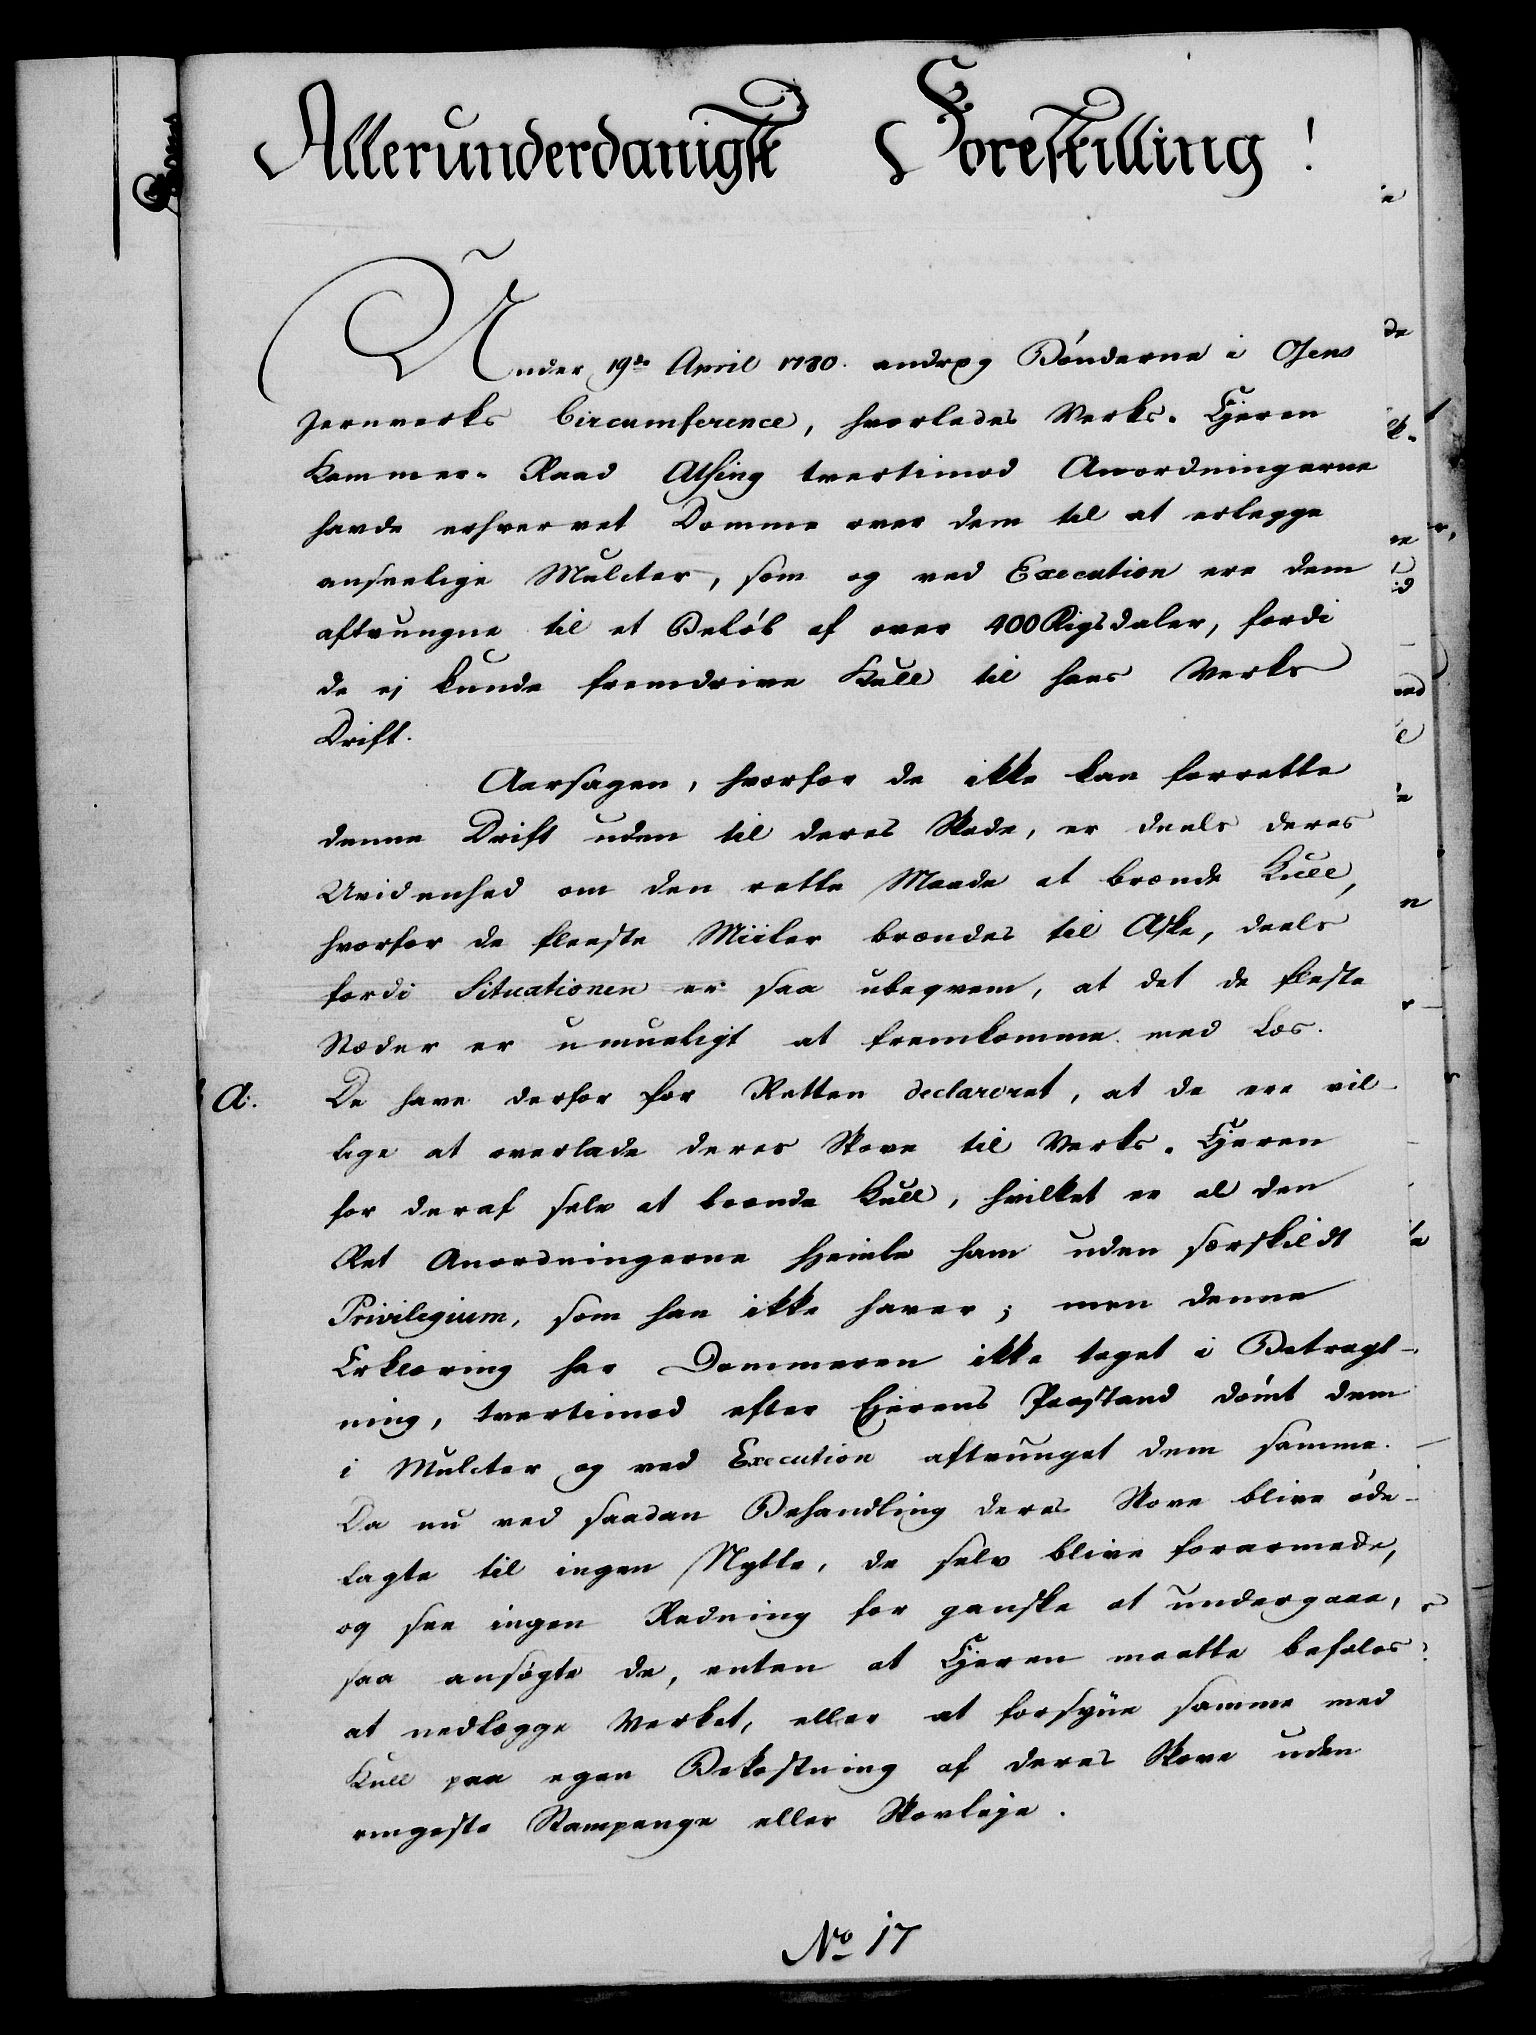 Allerunderdanigst Forestilling!
Under 19de April 1780. androg Bønderne i Osens
Jernverks Circumference, hvorledes Verks-Ejeren
Kammer-Raad tvertimod Anordningerne
havde erhvervet Domme over dem til at erlegge
anseelige Mulcter, som og ved Execution ere dem
aftvungne til et Beløb af over 400 Rigsdaler, fordi
de ej kunde fremdrive Kull til hans Verks
Drift.
Aarsagen, hvorfor de ikke kan forrette
denne Drift uden til deres Skade, er deels deres
Uvidenhed om den rette Maade at brænde Kull,
hvorfor de fleeste Miiler brændes til Aske, deels
fordi Situationen er saa ubeqvem, at det de fleste
Stæder er umueligt at fremkomme med Læs.
A. De have derfor for Retten declareret, at de ere vil-
lige at overlade deres Skove til Verks-Ejeren
for deraf selv at brænde Kull, hvilket er al den
Ret Anordningerne hjemle ham uden særskildt
Privilegium, som han ikke haver; men denne
Erklæring har Dommeren ikke taget i Betragt-
ning, tvertimod efter Ejerens Paastand dømt dem
i Mulcter og ved Execution aftvunget dem samme.
Da nu ved saadan Behandling deres Skove blive øde-
lagte til ingen Nytte, de selv blive forarmede,
og see ingen Redning for ganske at undergaae,
saa ansøgte de, enten at Ejeren maatte befales
at nedlægge Verket, eller at forsyne samme med
Kull paa egen Bekostning af deres Skove uden
ringeste Stampenge eller Skovleje.
No 17